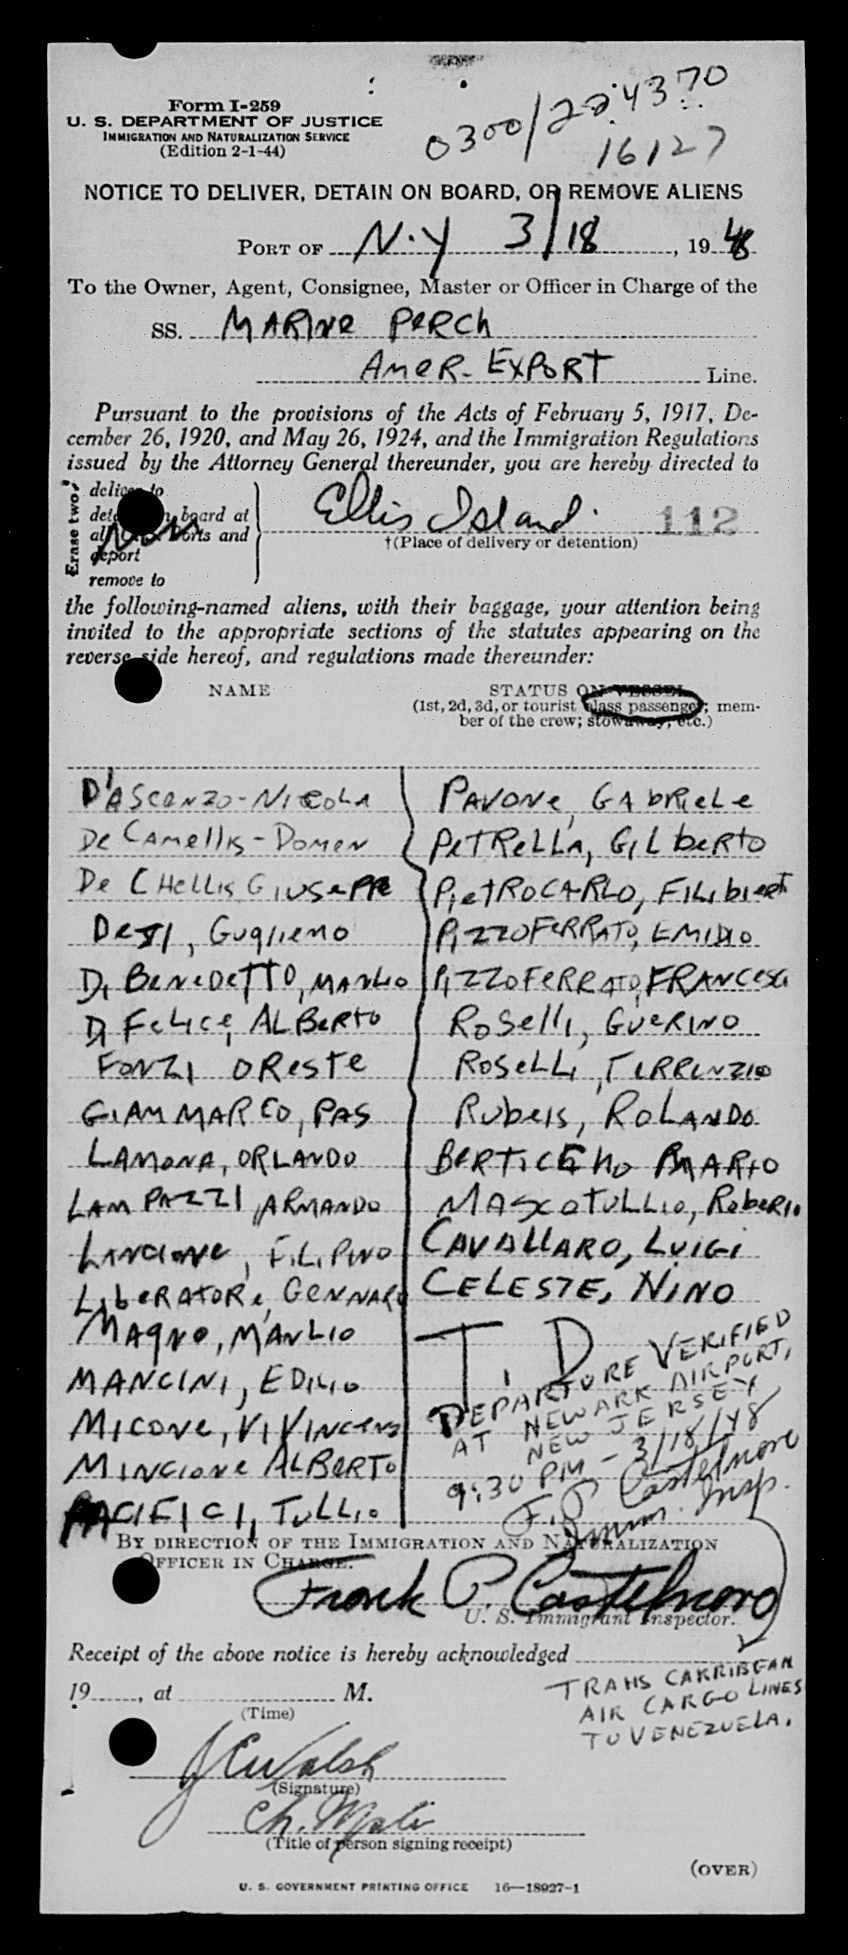 Form I-259
U. S. DEPARTMENT OF JUSTICE
IMMIGRATION AND NATURALIZATION SERVICE
(Edition 2-1-44)
0300/224370
16127
NOTICE TO DELIVER, DETAIN ON BOARD, OR REMOVE ALIENS
PORT OF N.Y 3/18, 1948
To the Owner, Agent, Consignee, Master or Officer in Charge of the
SS. MARINE PERCH
AMER. EXPORT Line.
Pursuant to the provisions of the Acts of February 5, 1917, De-
cember 26, 1920, and May 26, 1924, and the Immigration Regulations
issued by the Attorney General thereunder, you are hereby directed to
Erase two.
deliver to
board at
ports and
deport
remove to
Ellis Island. 112
†(Place of delivery or detention)
the following-named aliens, with their baggage, your attention being
invited to the appropriate sections of the statutes appearing on the
reverse side hereof, and regulations made thereunder:
NAME
STATUS ON VESSEL
(1st, 2d, 3d, or tourist class passenger; mem-
ber of the crew; stowaway, etc.)
D'ASCENZO-NICOLA
De CAMellis-DOMEN
De CHellis GIUSePPe
Desi, Guglielmo
Di BeNeDeTTO, MANLIO
Di FeLice, ALBeRto
FONZI ORESTE
GIAMMARCO, PAS
LAMONA, ORLANDO
LAMPAZZI, ARMANDO
LANCIONe, FILIPINO
LibeRATORe, GeNNARO
MAGNO, MANLIO
MANCINI, EDILIO
MICONe, VIVINCENS
MINCIONe ALBeRTO
PACIFICI, TULLIO
PAVONe, GAbRieLe
PeTReLLA, GILbeRTO
PietROCARLO, FILIbieRT
PIZZOFeRRATO, EMIDIO
PIZZOFeRRATO, FRANCESC
RoSelli, GUeRINO
ROSeLLI, TERRENZIO
Rubeis, ROLANDO
BERTICEHO MARIO
MAScOTULLIO, RobeRTo
CAVALLARO, LUIGI
CELESTE, NINO
T. D
DEPARTURE VERIFIED
AT NEWARK AIRPORT,
NEW JERSEY
9:30 PM - 3/18/48
F. P. Castelnovo
Immn. Insp.
BY DIRECTION OF THE IMMIGRATION AND NATURALIZATION
OFFICER IN CHARGE.
Frank P. Castelnovo
U. S. Immigrant Inspector.
Receipt of the above notice is hereby acknowledged
19......, at M.
(Time)
TRANS CARRIBEAN
AIR CARGO LINES
TO VENEZUELA.
J C Walsh
(Signature)
Ch.
(Title of person signing receipt)
(OVER)
U. S. GOVERNMENT PRINTING OFFICE 16—18927-1